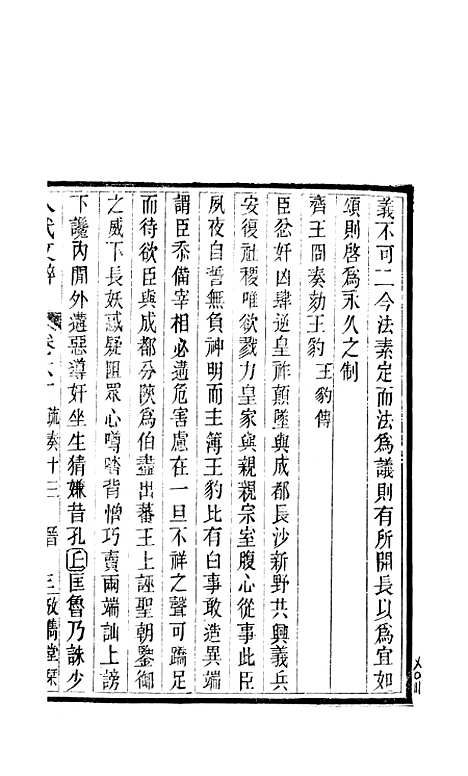 義不可二今法素定而法爲議則有所開長以爲宜如
頌則啓爲永久之制
齊王冏奏劾王豹 王豹傳
臣忿奸凶肆逆皇祚顚墜與成都長沙新野共興義兵
安復社稷唯欲戮力皇家與親親宗室腹心從事此臣
夙夜自誓無負神明而主簿王豹比有白事敢造異端
謂臣忝備宰相必遘危害慮在一旦不祥之聲可蹻足
而待欲臣與成都分陝爲伯盡出蕃王上誣聖朝鑒御
之威下長妖惑疑阻眾心噂𠴲背憎巧賣兩端訕上謗
下讒內間外遘惡導奸坐生猜嫌昔孔丘匡魯乃誅少
八代文粹 卷六十 疏奏十三 晉 三 攷儁堂栞